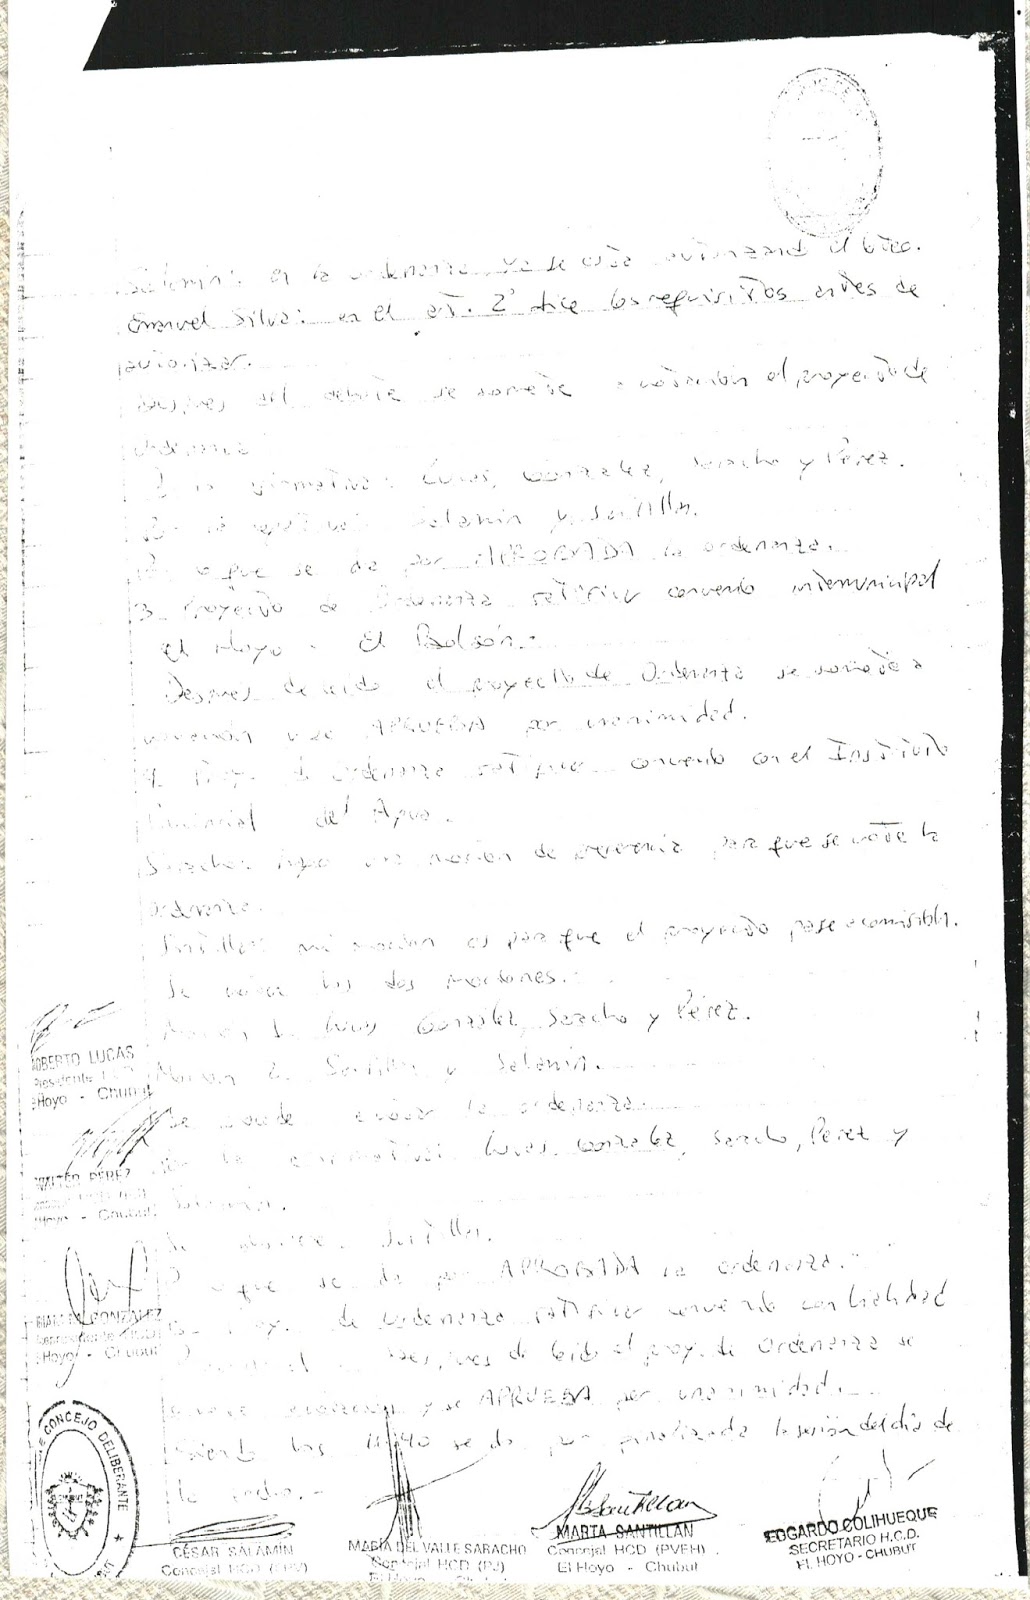 Salamin: en la ordenanza ya se esta autorizando el
Emanuel Silva: en el art. 2° dice los requisitos antes de
autorizar.
Despues del debate se somete a votación el proyecto de
ordenanza
la afirmativa: Lucas, González, Saracho y Pérez.
Salamin y Santillán.
lo que se da por APROBADA la ordenanza.
3. Proyecto de Ordenanza ratificar convenio intermunicipal
El Hoyo - El Bolsón.-
Despues de leido el proyecto de Ordenanza se somete a
votación y se APRUEBA por unanimidad.
4. Proy. de ordenanza ratificar convenio con el Instituto
Provincial del Agua.
Saracho: hago una moción de para que se vote la
ordenanza.
Santillan: mi moción es para que el proyecto pase a comisión.
Se votan las dos mociones.
Moción 1. Lucas González, Saracho y Pérez.
Moción 2. Santillan y Salamin.
Se procede a votar la ordenanza.
Por la afirmativa: Lucas, González, Saracho, Pérez y
Salamin.
Se abstiene: Santillan.
lo que se da por APROBADA la ordenanza.
5. Proy. de ordenanza ratificar convenio con Vialidad
Provincial. Despues de leido el proy. de Ordenanza se
votación y se APRUEBA por unanimidad.
Siendo las 14:40 se da por finalizada la sesión del día de
la fecha.-
ROBERTO LUCAS
Presidente HCD
El Hoyo - Chubut
WALTER PÉREZ
Hoyo - Chubut
GONZALEZ
Hoyo - Chubut
CONCEJO DELIBERANTE
CÉSAR SALAMÍN
Concejal HCD
MARÍA DEL VALLE SARACHO
Concejal HCD (PJ)
El Hoyo - Chubut
M Santillan
MARTA SANTILLÁN
Concejal HCD (PVEH)
El Hoyo - Chubut
EDGARDO COLIHUEQUE
SECRETARIO H.C.D.
EL HOYO - CHUBUT